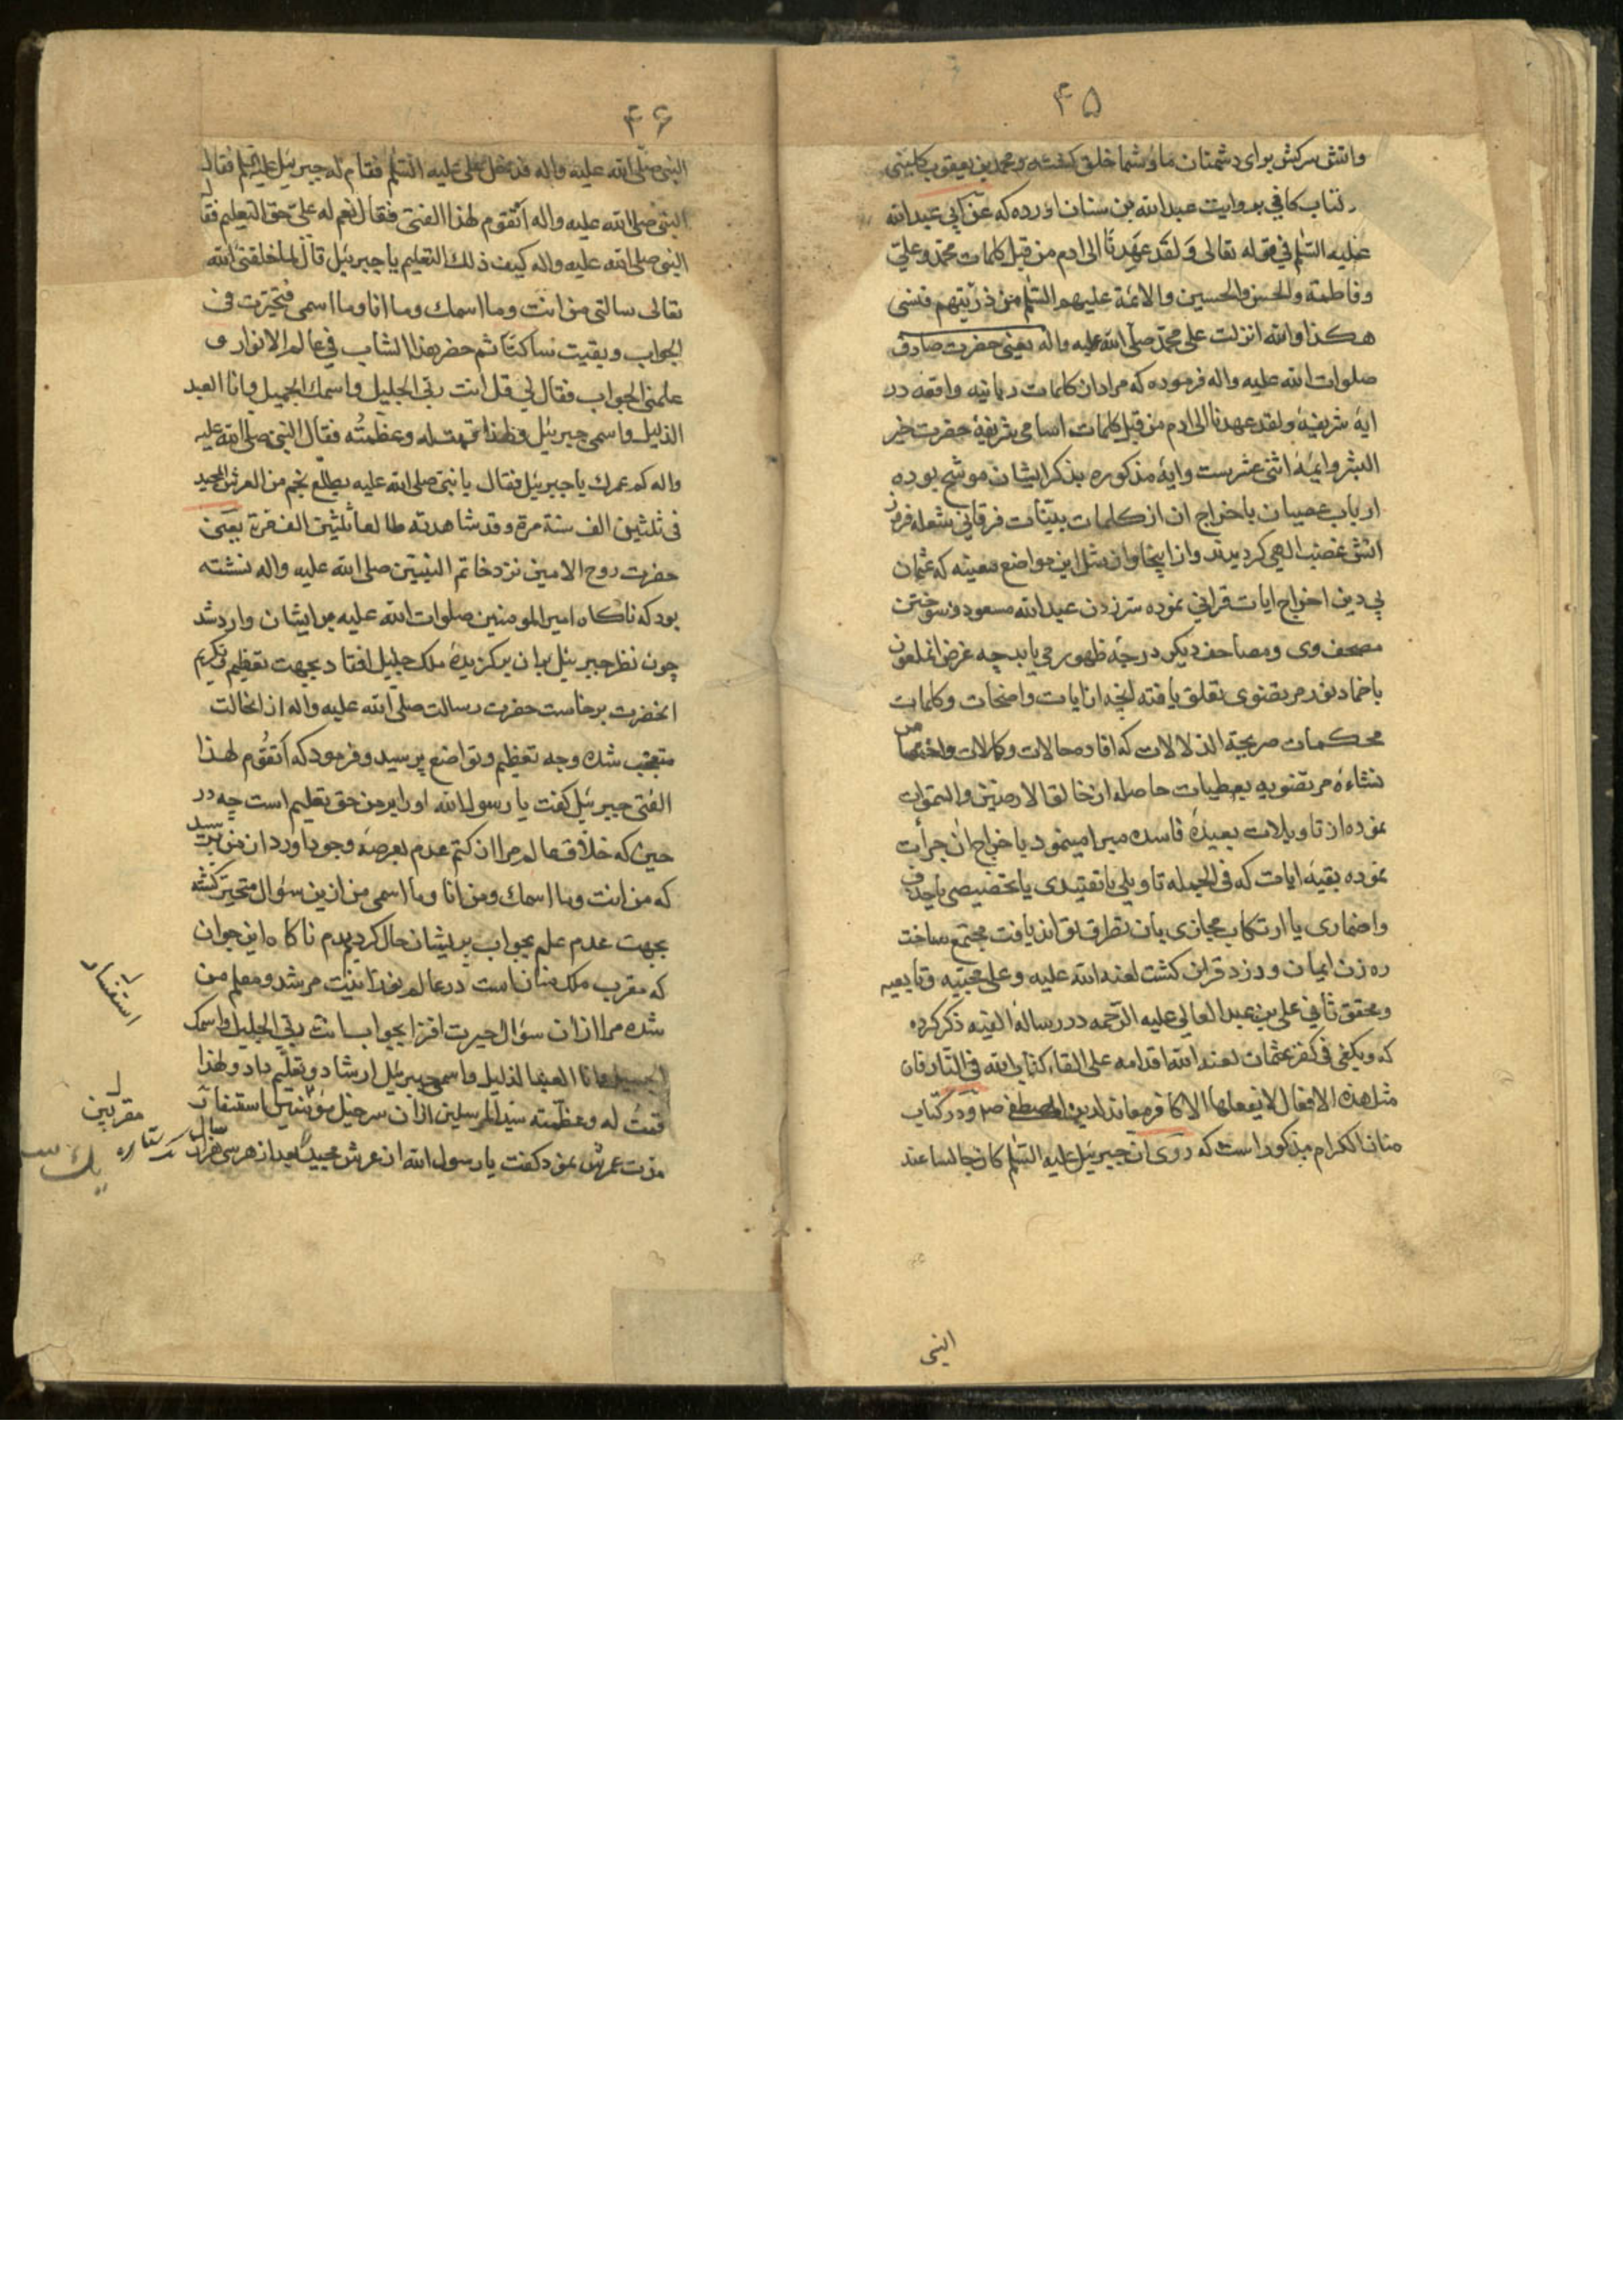 ۴۵
واتش سرکش برای دشمنان ما و شما خلق کشته و محمد بن یعقوب کلینی
در کتاب کافی بروایت عبد الله بن سنان اورده که عن ابی عبد الله
علیه السلم فی قوله تعالی وَلَقَد عَهِدنَا الی ادم من قبل کلمات محمد وعلیّ
وفاطمة والحسن والحسین والائمة علیهم السلم من ذرّیتهم فنسی
هکذا والله انزلت علی محمّد صلّی الله علیه واله یعنی حضرت صادق
صلوات الله علیه واله فرموده که مراد از کلمات ربانیه واقعه در
ایهٔ شریفهٔ ولقد عهدنا الی ادم من قبل کلمات اسامی شریفهٔ حضرت خیر
البشر وائمهٔ اثنی عشرست وایهٔ مذکوره بذکر ایشان موشح بوده
ارباب عصیان باخراج ان از کلمات بینات فرقانی شعله فروز
اتش غضب الهی کردیدند واز اینجا واز مثل این مواضع معینه که عثمان
بی دین اخراج ایات قرانی نموده سر زدن عبد الله مسعود وسوختن
مصحف وی ومصاحف دیکر درجهٔ ظهور می یابد چه غرض انملعون
باخماد نور مرتضوی تعلق یافته انچه از ایات واضحات وکلمات
محکمات صریحة الدلالات که افاد وحالات وکمالات واختصاص
نشاءهٔ مرتضویه بعطیات حاصله از خالق الارضین والسموات
نموده از تاویلات بعیدهٔ فاسده مبرا مینمود باخراج ان جرأت
نموده بقیهٔ ایات که فی الجمله تاویلی یا تقییدی یا تخصیصی یا حذف
واضماری یا ارتکاب مجازی بان تطرق تواند یافت مجتمع ساخت
ره زن ایمان ودزد قران کشت لعنه الله علیه وعلی محبیه وتابعیه
ومحقق ثانی علی بن عبد العالی علیه الرّحمه در رسالهٔ الفیه ذکر کرده
که ویکفی فی کفر عثمان لعنه الله اقدامه علی القاء کتاب الله فی النّار فان
مثل هذه الافعال لا یفعلها الا کافر معاند لدین المصطفی ص ودر کتاب
منازل الکرام مذکور است که روی ان جبرئیل علیه السّلم کان جالسا عند
النبی
۴۶
النبی صلّی الله علیه واله فدخل علی علیه السّلم فقام له جبرئیل علیه السّلم فقال
النبی صلی الله علیه واله اَتقوم لهذا الفتی فقال نعم له علیّ حق التعلیم فقال
النبی صلی الله علیه واله کیف ذلك التعلیم یا جبرئیل قال لما خلقنی الله
تعالی سالنی من انت وما اسمك وما انا وما اسمی فتحیّرت فی
الجواب وبقیت ساکتاً ثم حضر هذا الشاب فی عالم الانوار و
علّمنی الجواب فقال لی قل انت ربّی الجلیل واسمك الجمیل وانا العبد
الذلیل واسمی جبرئیل ولهذا قمت له وعظّمتُه فقال النبی صلی الله علیه
واله کم عمرك یا جبرئیل فقال یا نبی صلی الله علیه یطلع نجم من العرش المجید
فی ثلثین الف سنة مرة وقد شاهدته طالعا ثلثین الف مرة یعنی
حضرت روح الامین نزد خاتم النبیّین صلی الله علیه واله نشسته
بود که ناکاه امیر المومنین صلوات الله علیه بر ایشان وارد شد
چون نظر جبرئیل بران برکزیدهٔ ملک جلیل افتاد بجهت تعظیم وتکریم
انحضرت برخاست حضرت رسالت صلّی الله علیه واله از انحالت
متعجّب شده وجه تعظیم وتواضع پرسید وفرمود که اَتقُوم لهذا
الفتی جبرئیل کفت یا رسول الله اورا بر من حق تعلیم است چه در
حین که خلاق عالم مرا از کتم عدم بعرصهٔ وجود اورد از من پرسید
که من انت وما اسمك ومن انا وما اسمی من ازین سؤال متحیر کشته
بجهت عدم علم بجواب پریشان حال کردیدم ناکاه این جوان
که مقرب ملک منان است در عالم نورانیت مرشد ومعلم من
شده مرا ازان سؤال حیرت افزا بجواب انت ربّی الجلیل واسمك
الجمیل وانا العبد الذلیل واسمی جبرئیل ارشاد وتعلیم داد ولهذا
قمتُ له وعظّمته سید المرسلین ازان سرخیل استفسار
مدت عمرش نمود کفت یا رسول الله از عرش مجید بعد از هر سی هزار سال
استفسار
مقربین
ستاره
یك